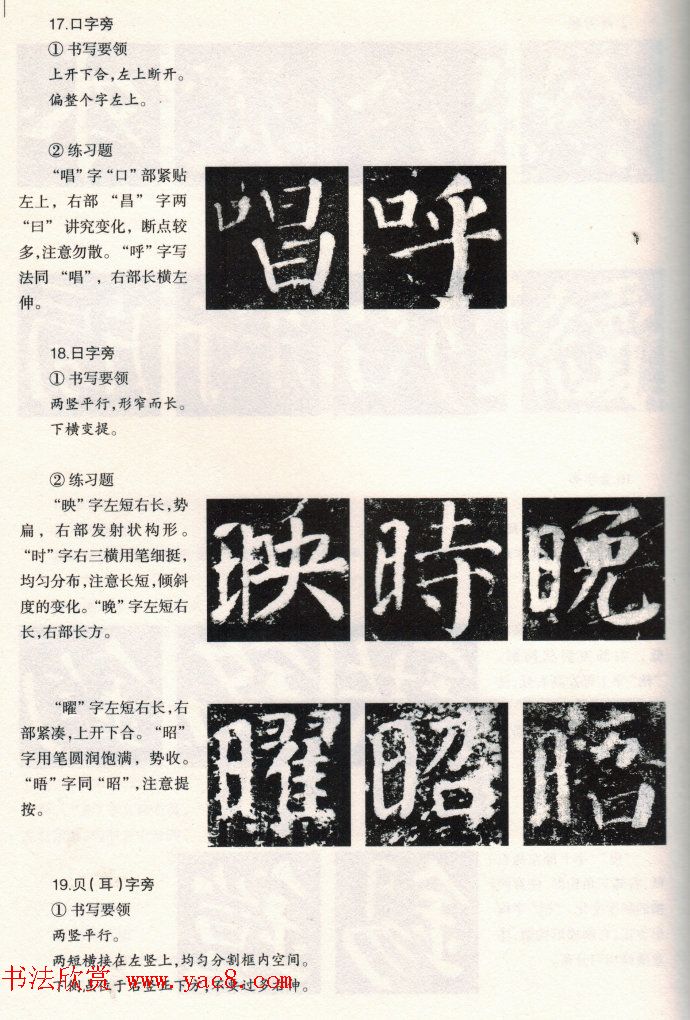 17.口字旁
①书写要领
上开下合,左上断开。
偏整个字左上。
②练习题
“唱”字“口”部紧贴
左上，右部“昌”字两
“曰”讲究变化，断点较
多,注意勿散。“呼”字写
法同“唱”，右部长横左
伸。
唱 呼
18.日字旁
①书写要领
两竖平行,形窄而长。
下横变提。
②练习题
“映”字左短右长,势
扁，右部发射状构形。
“时”字右三横用笔细挺,
均匀分布,注意长短,倾斜
度的变化。“晚”字左短右
长,右部长方。
映 時 晚
“曜”字左短右长,右
部紧凑,上开下合。“昭”
字用笔圆润饱满，势收。
“晤”字同“昭”,注意提
按。
曜 昭 晤
19.贝(耳)字旁
①书写要领
两竖平行。
两短横接在左竖上,均匀分割框内空间。
书法欣赏 www.yac8.com